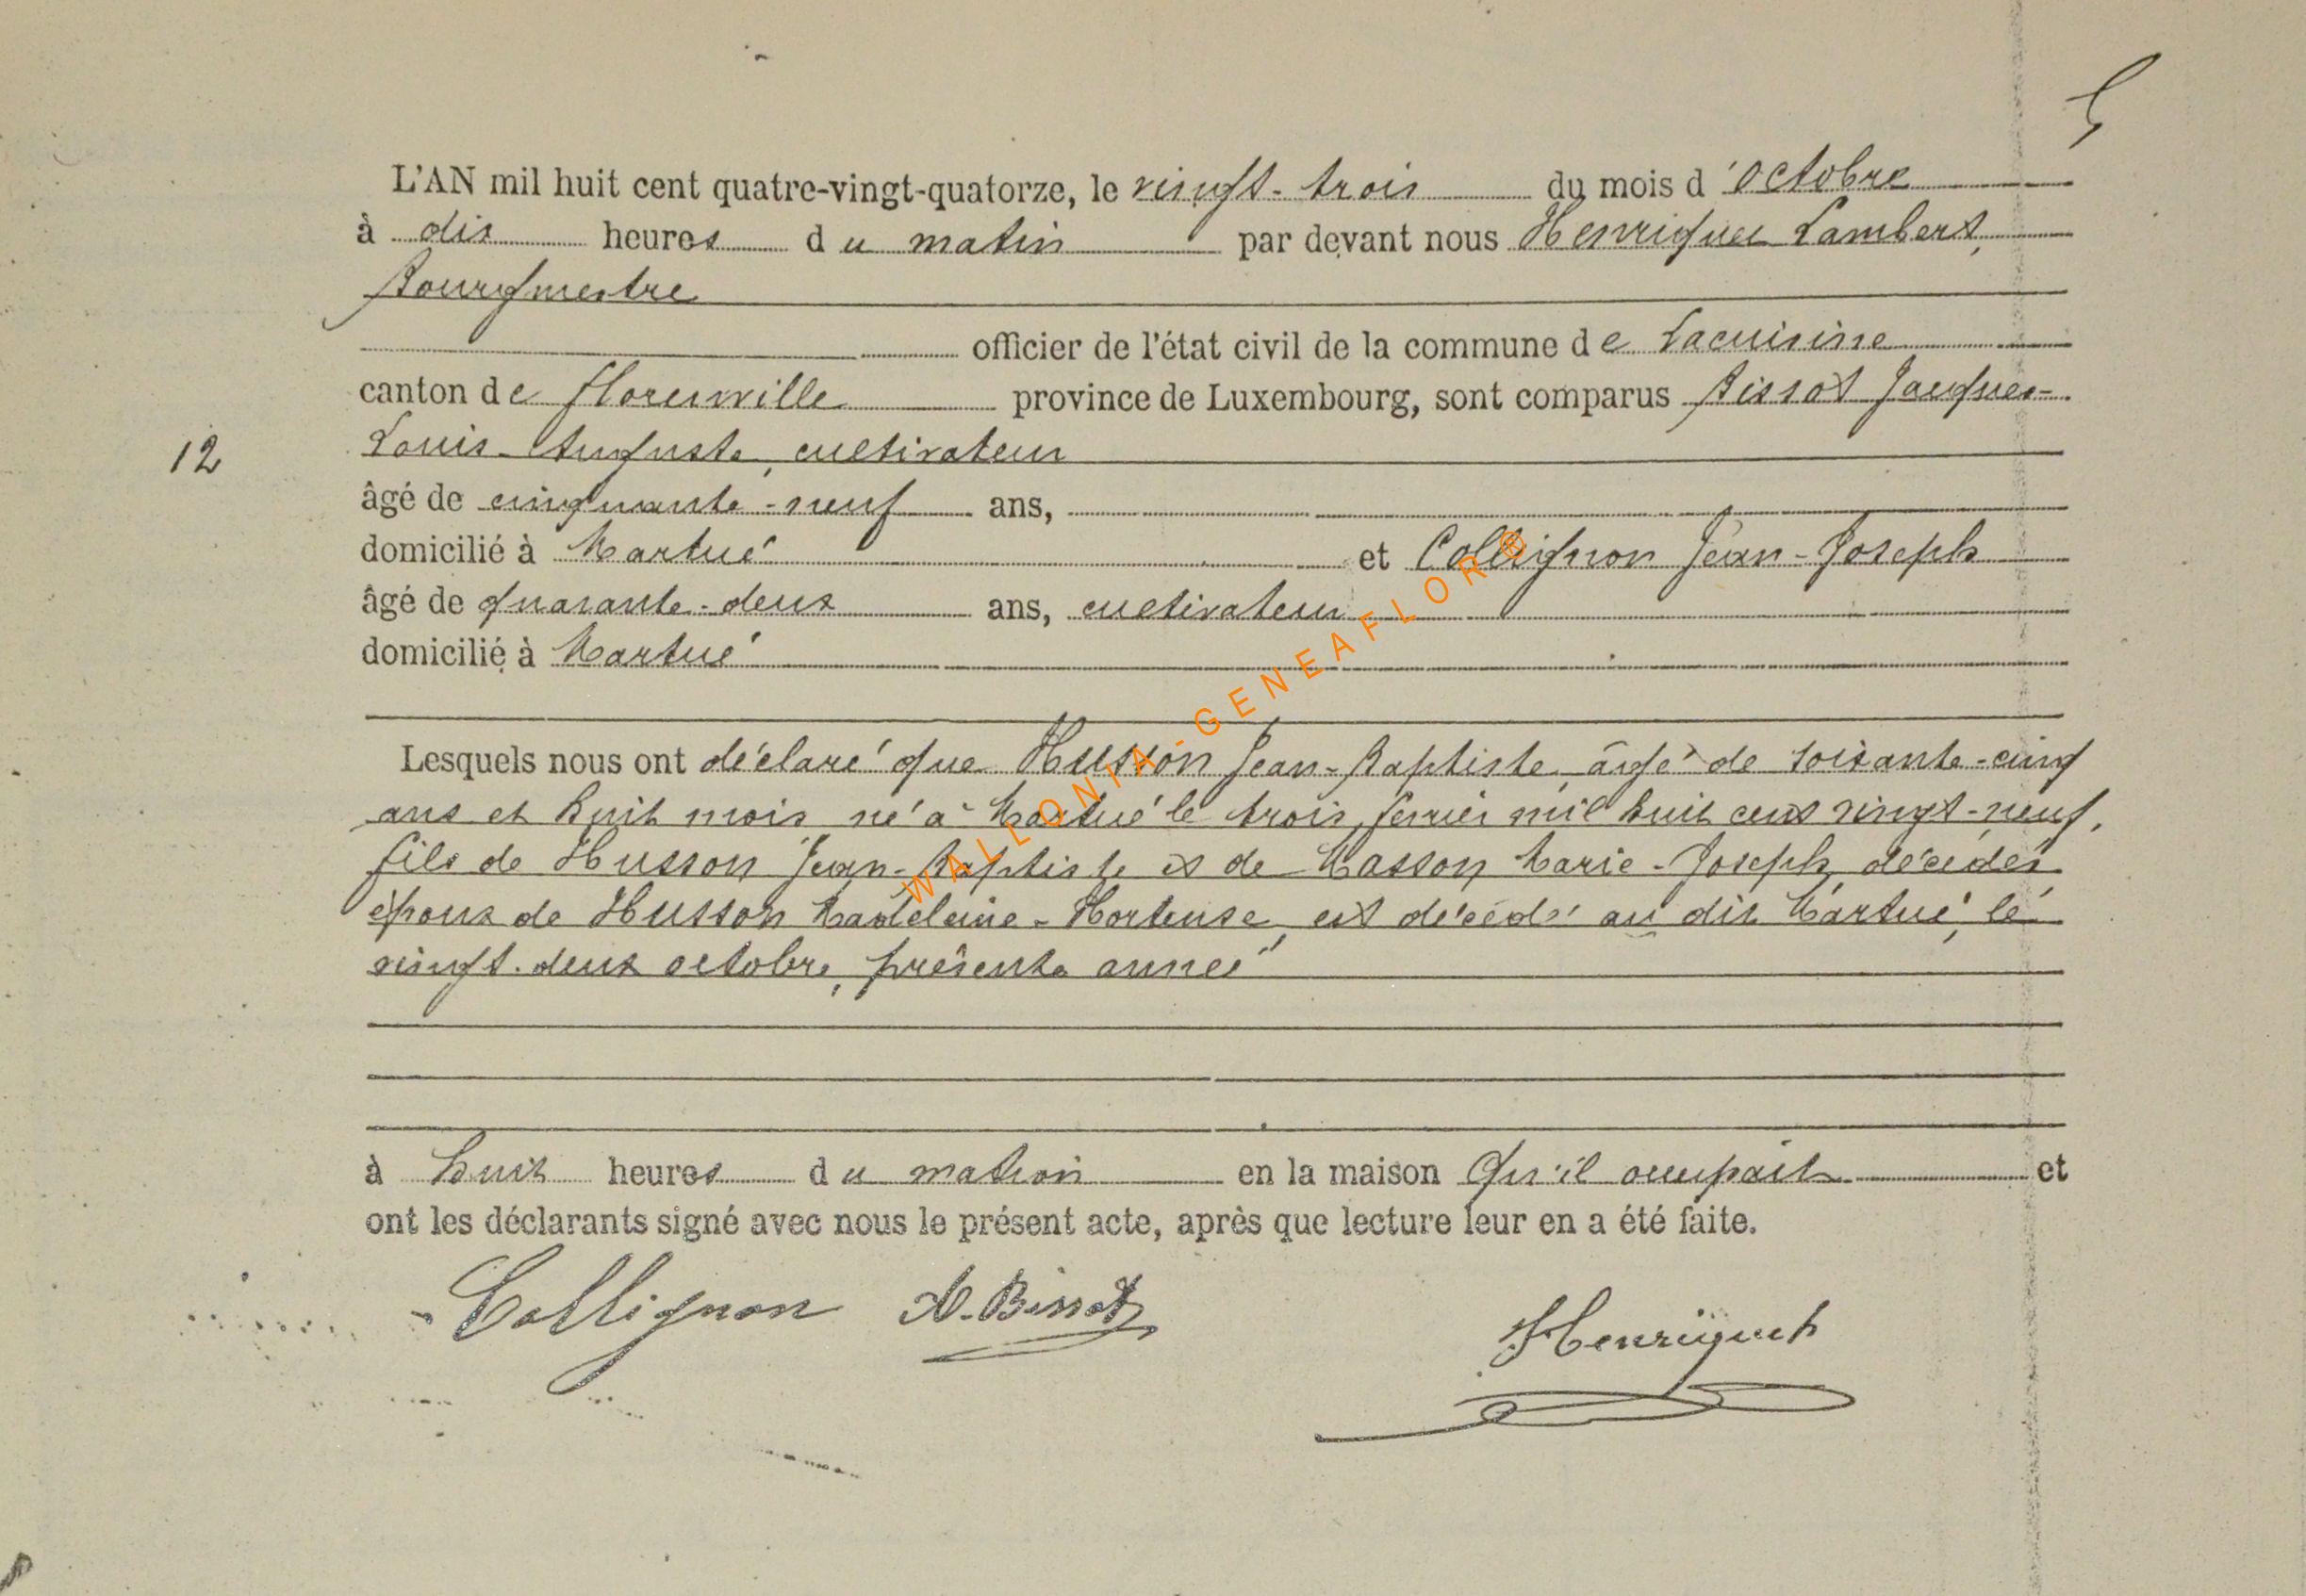 5
L'AN mil huit cent quatre-vingt-quatorze, le vingt-trois du mois d'octobre
à dix heures du matin par devant nous Henriquet Lambert,
Bourgmestre
officier de l'état civil de la commune de Lacuisine
canton de Florenville province de Luxembourg, sont comparus Bissot Jacques-
12
Louis-Auguste, cultivateur
âgé de cinquante-neuf ans,
domicilié à Martué et Collignon Jean-Joseph
âgé de quarante-deux ans, cultivateur
domicilié à Martué
Lesquels nous ont déclaré que Husson Jean-Baptiste, âgé de soixante-cinq
ans et huit mois, né à Martué le trois février mil huit cent vingt-neuf,
fils de Husson Jean-Baptiste et de Masson Marie-Joseph, décédés
époux de Husson Madeleine-Hortense, est décédé au dit Martué, le
vingt-deux octobre, présente année
à huit heures du matin en la maison qu'il occupait et
ont les déclarants signé avec nous le présent acte, après que lecture leur en a été faite.
Collignon A. Bissot
Henriquet
WALLONIA-GENEAFLOR®